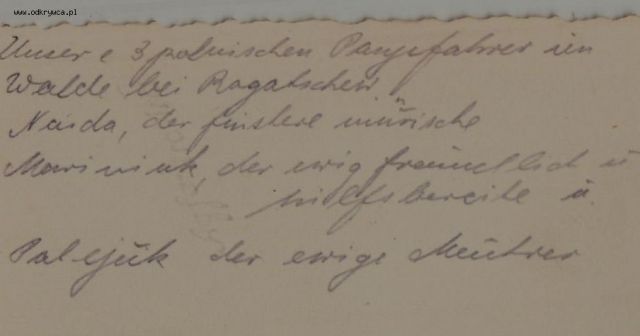 www.odkrywca.pl
Unsere 3 polnischen Panjefahrer im
Walde bei Rogatschew
Naida, der finstere mürrische
der ewig freundlich u
hilfsbereite u.
Paljuk der ewige Meutrer